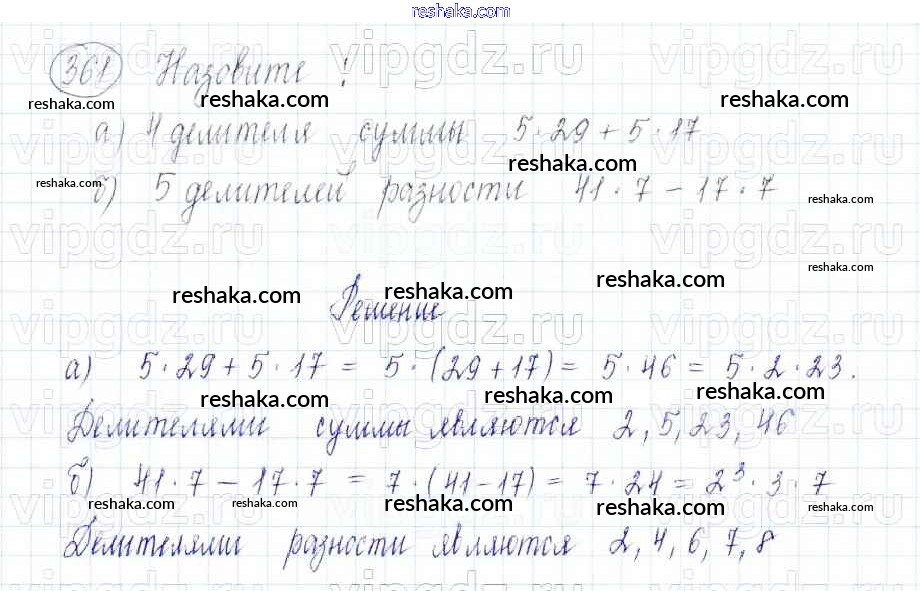 reshaka.com
361 Назовите!
reshaka.com reshaka.com reshaka.com
а) 4 делителя суммы 5·29+5·17
reshaka.com
reshaka.com
б) 5 делителей разности 41·7-17·7
reshaka.com
vipgdz.ru vipgdz.ru vipgdz.ru
reshaka.com
reshaka.com reshaka.com reshaka.com
Решение
а) 5·29+5·17 = 5·(29+17) = 5·46 = 5·2·23.
reshaka.com reshaka.com reshaka.com
Делителями суммы являются 2, 5, 23, 46
б) 41·7-17·7 = 7·(41-17) = 7·24 = 2³·3·7
reshaka.com reshaka.com reshaka.com reshaka.com reshaka.com
Делителями разности являются 2, 4, 6, 7, 8